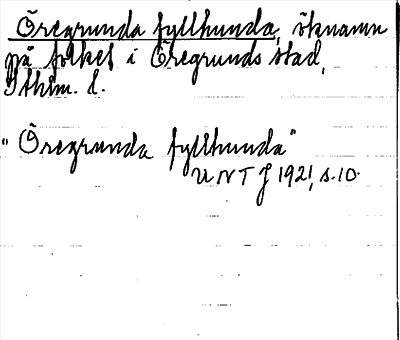 Öregrunda fyllhunda, öknamn
på folket i Öregrunds stad,
Sthlm. l.
"Öregrunda fyllhunda"
UNT J 1921, s. 10.